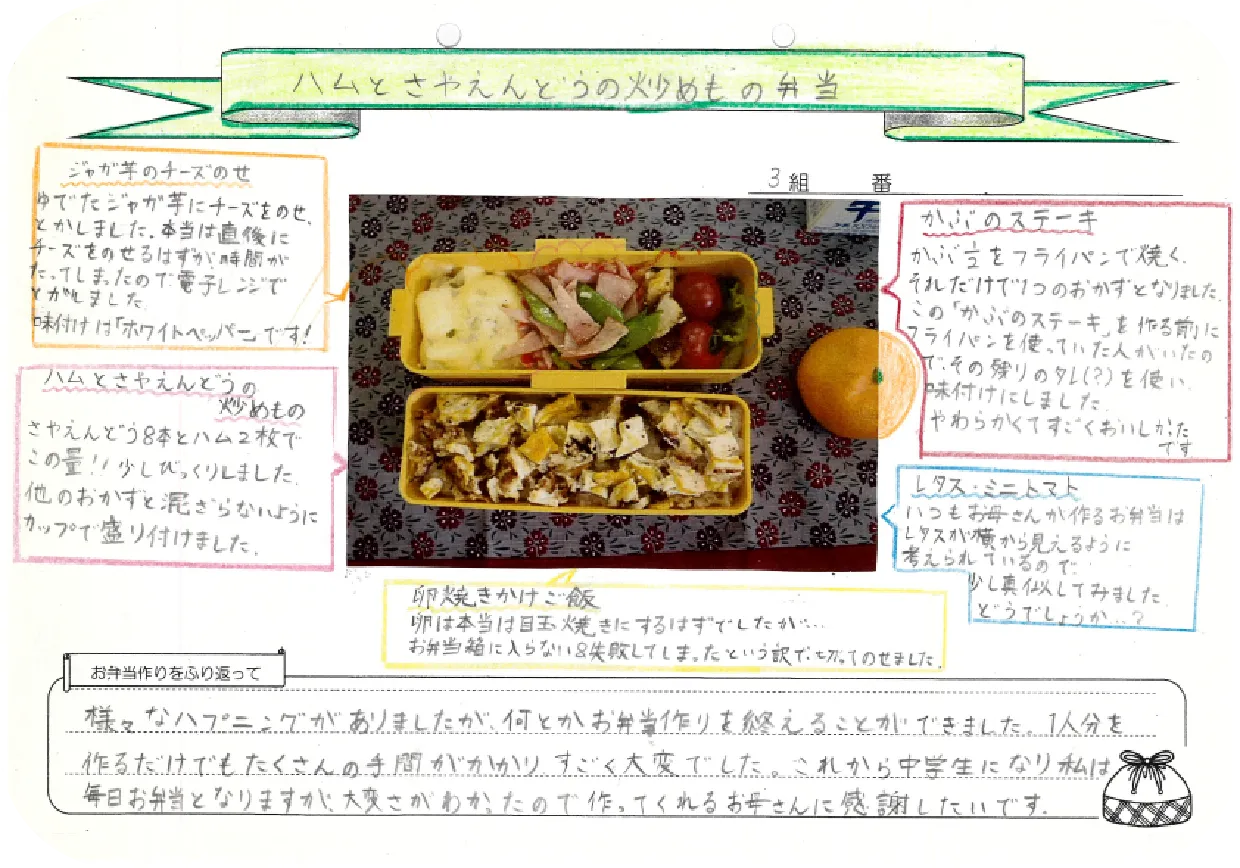 ハムとさやえんどうの炒めもの弁当
3組 番
ジャガ芋のチーズのせ
ゆでたジャガ芋にチーズをのせ、
とかしました。本当は直後に
チーズをのせるはずが、時間が
たってしまったので電子レンジで
とかしました。
味付けは「ホワイトペッパー」です!
ハムとさやえんどうの
炒めもの
さやえんどう8本とハム2枚で
この量!!少しびっくりしました。
他のおかずと混ざらないように
カップで盛り付けました。
かぶのステーキ
かぶ1/2をフライパンで焼く。
それだけで1つのおかずとなりました。
この「かぶのステーキ」を作る前に
フライパンを使っていた人がいたの
で、その残りのタレ(?)を使い、
味付けにしました。
やわらかくてすごくおいしかった
です
レタス・ミニトマト
いつもお母さんが作るお弁当は
レタスが横から見えるように
考えられているので
少し真似してみました。
どうでしょうか…?
卵焼きかけご飯
卵は本当は目玉焼きにするはずでしたが…
お弁当箱に入らない&失敗してしまったという訳で、切ってのせました。
お弁当作りをふり返って
様々なハプニングがありましたが、何とかお弁当作りを終えることができました。1人分を
作るだけでもたくさんの手間がかかり、すごく大変でした。これから中学生になり私は
毎日お弁当となりますが、大変さがわかったので作ってくれるお母さんに感謝したいです。